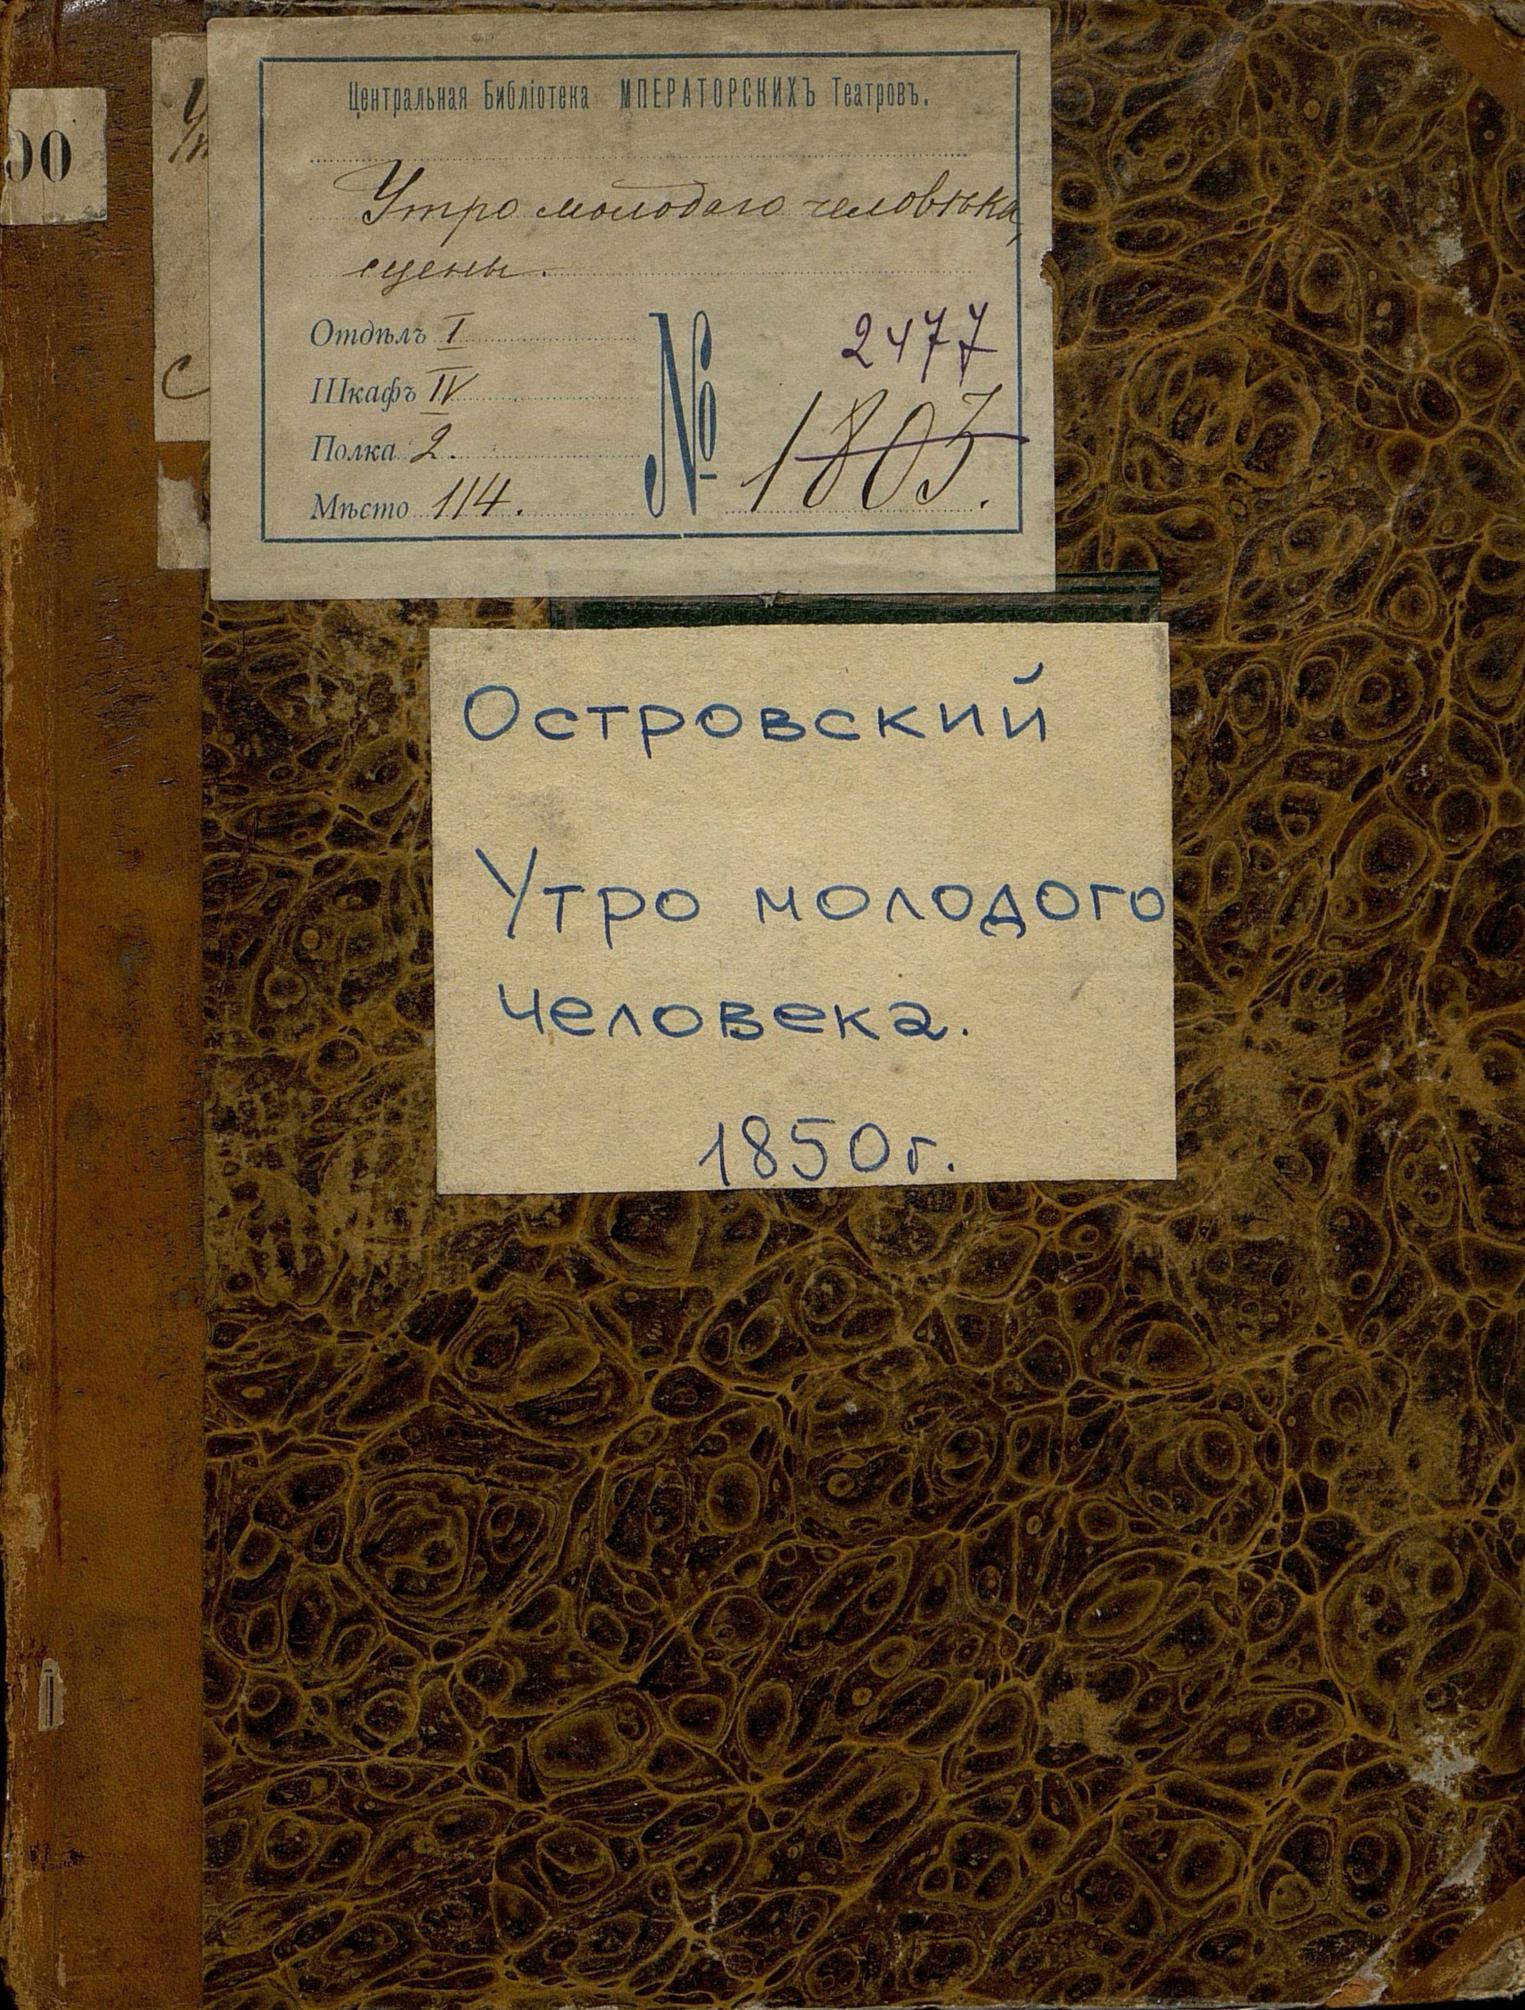 Центральная Библіотека МПЕРАТОРСКИХЪ Театровъ.
Утро молодаго человѣка,
сцены.
Отдѣлъ I
Шкафъ IV
Полка 2.
Мѣсто 114.
№ 2477
1803.
00
С
Островский
Утро молодого
человека.
1850г.